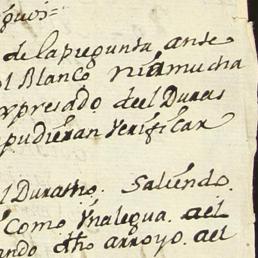 de la pregunta ante
el Blanco ni a mucha
xpresado de el Duras
pudieran verificar
l Durasno. Saliendo.
Como Vna legua. del
ando dho arroyo. del